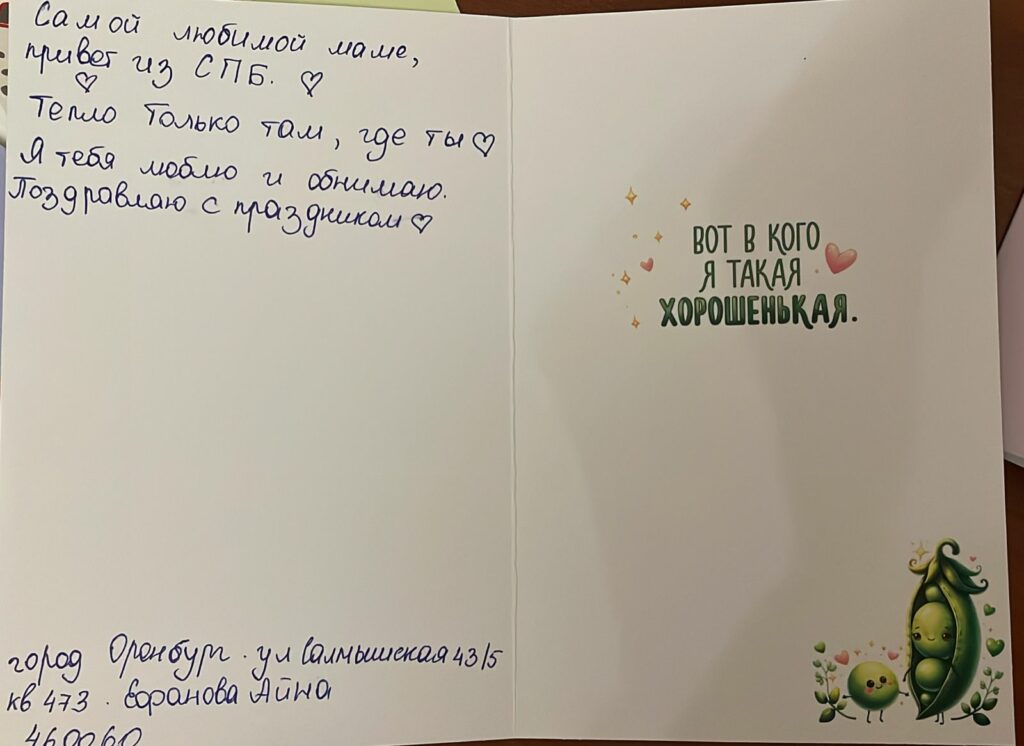 Самой любимой маме,
привет из СПБ. ♡
♡
Тепло только там, где ты ♡
Я тебя люблю и обнимаю.
Поздравляю с праздником ♡
город Оренбург. ул Салмышская 43/5
кв 473. Айна
460060
ВОТ В КОГО
Я ТАКАЯ
ХОРОШЕНЬКАЯ.